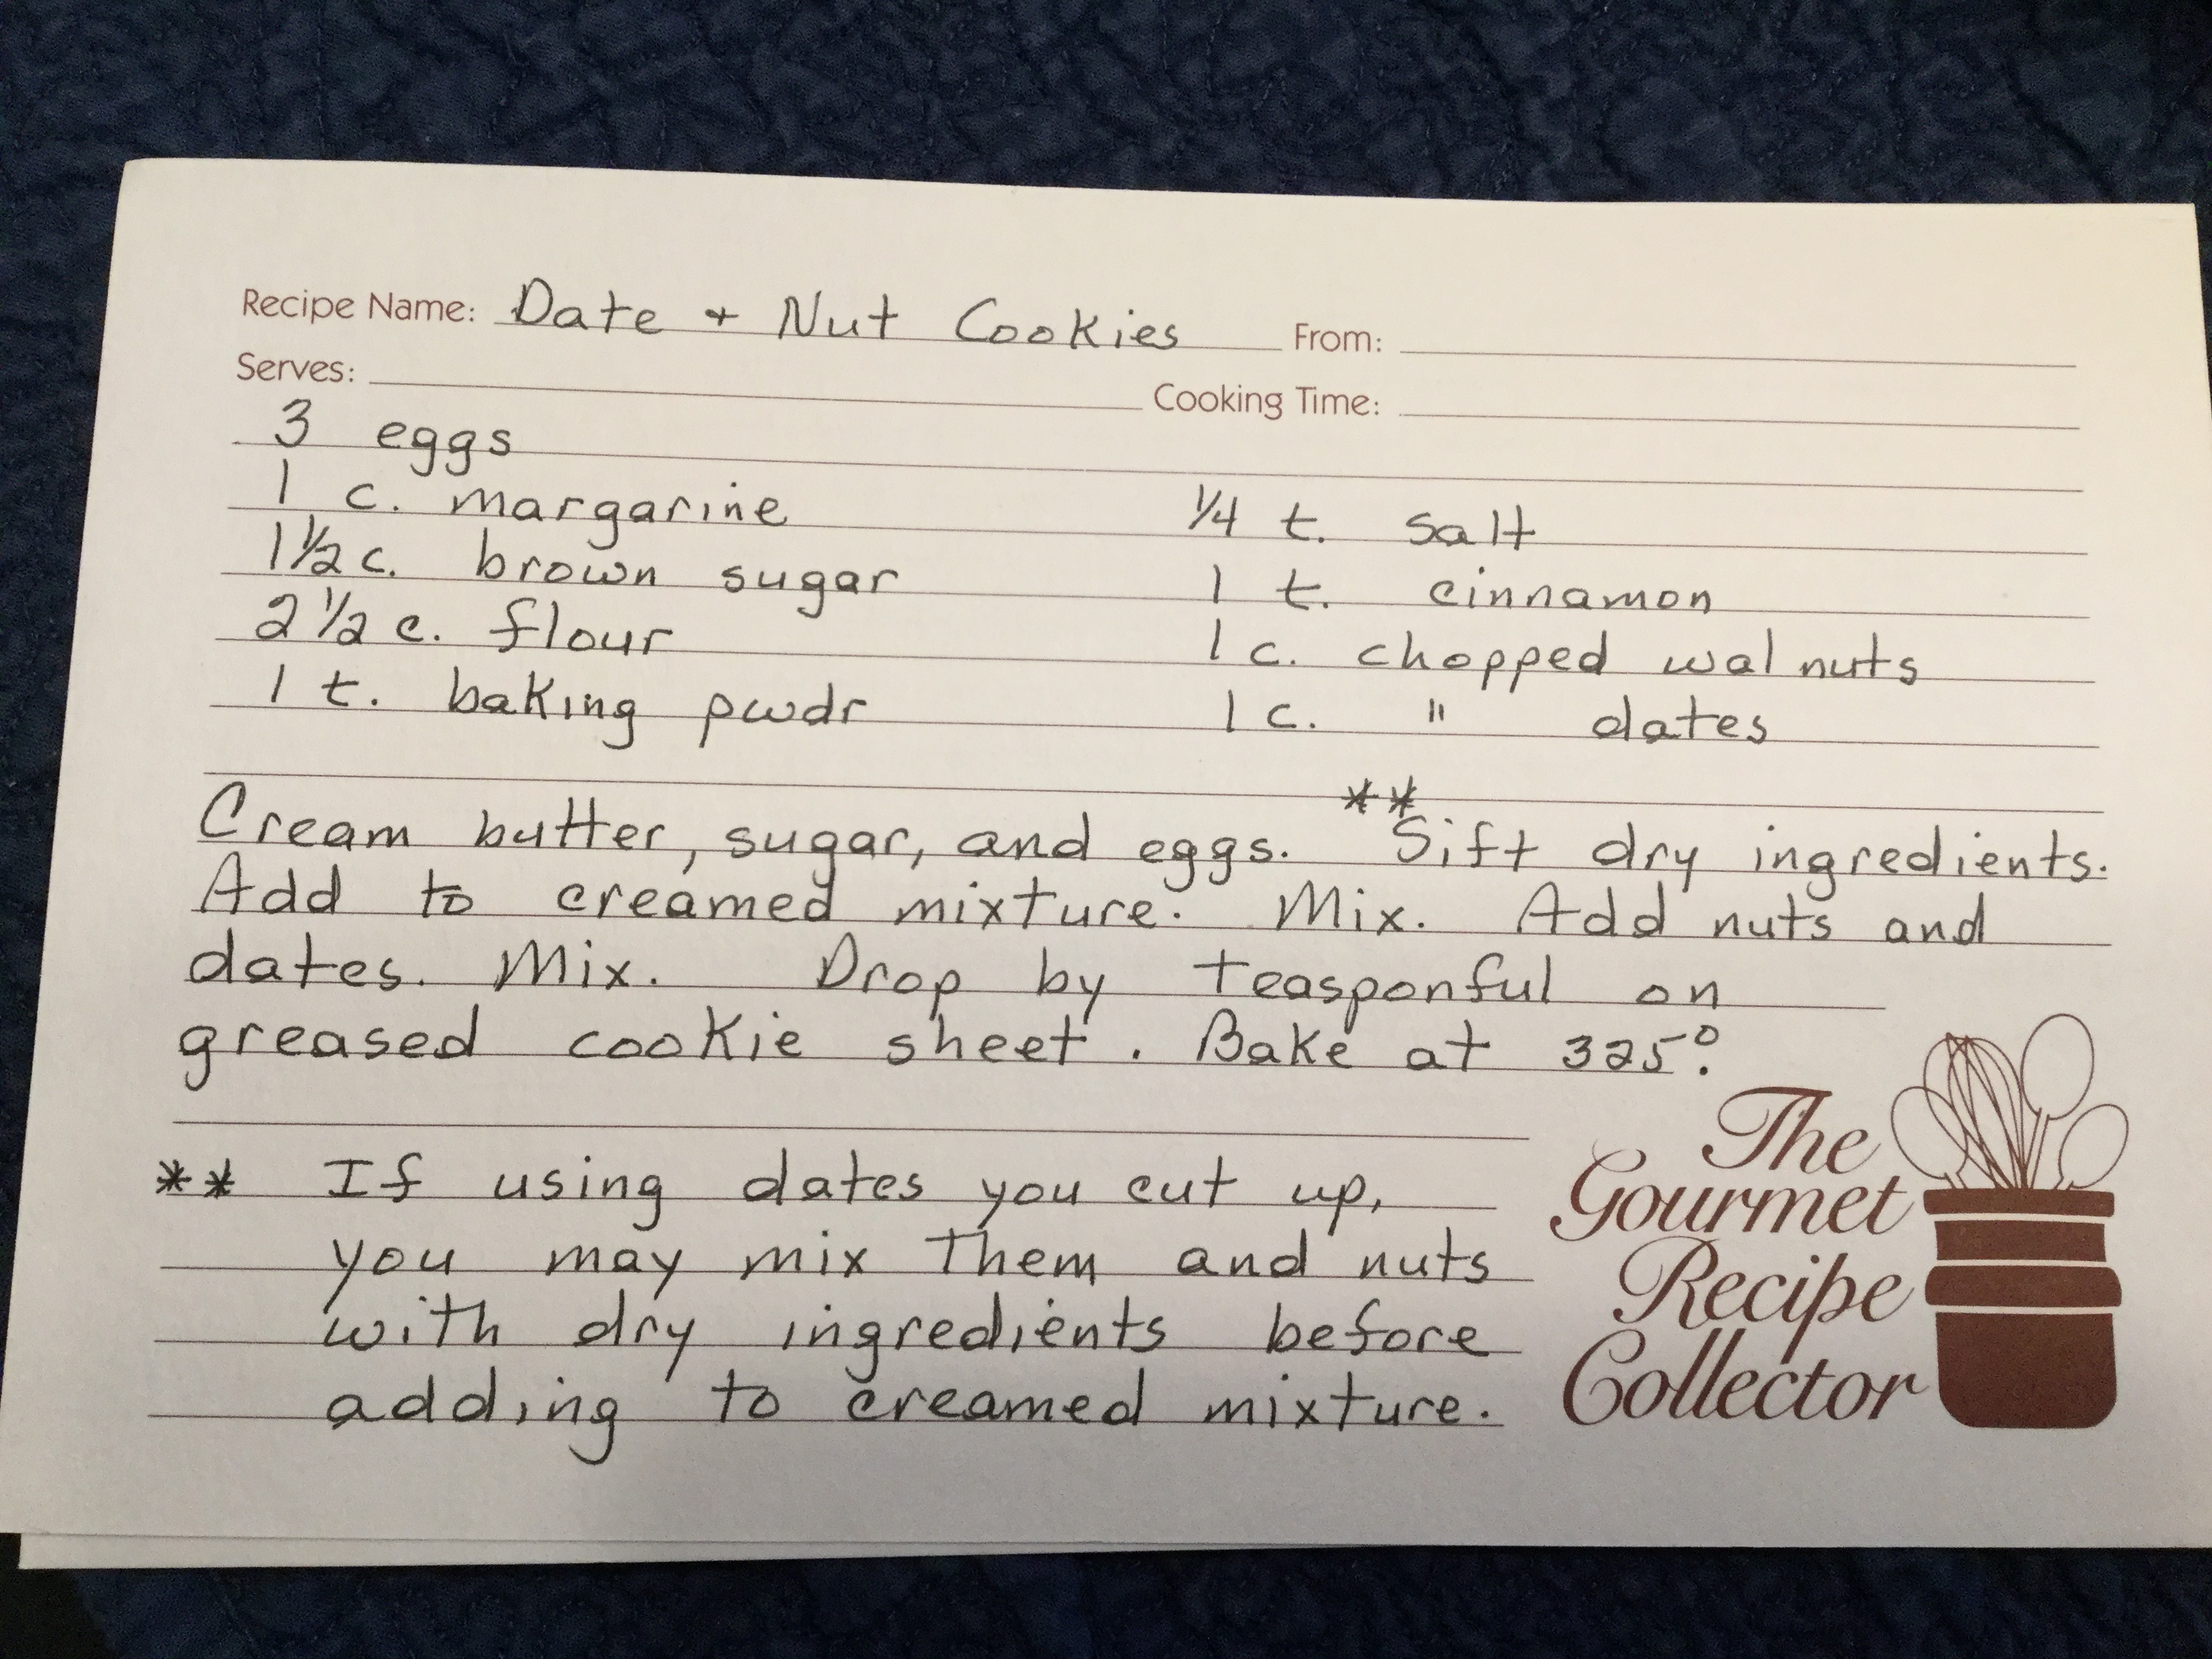 Recipe Name: Date + Nut Cookies From:
Serves: Cooking Time:
3 eggs
1 c. margarine
1 1/2 c. brown sugar
2 1/2 c. flour
1 t. baking pwdr
1/4 t. salt
1 t. cinnamon
1 c. chopped walnuts
1 c. " dates
Cream butter, sugar, and eggs. **Sift dry ingredients.
Add to creamed mixture. Mix. Add nuts and
dates. Mix. Drop by teasponful on
greased cookie sheet. Bake at 325°.
** If using dates you cut up,
you may mix them and nuts
with dry ingredients before
adding to creamed mixture.
The
Gourmet
Recipe
Collector